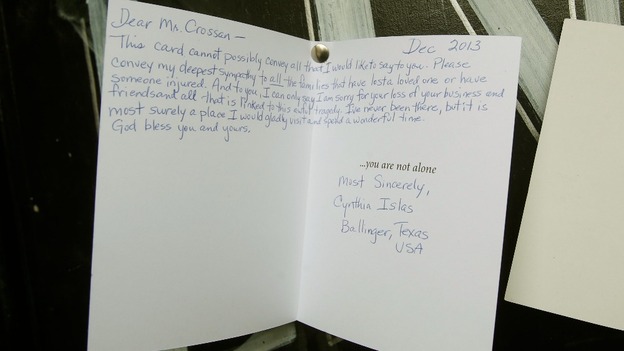 Dear Mr. Crossan —
Dec 2013
This card cannot possibly convey all that I would like to say to you. Please
convey my deepest sympathy to all the families that have lost a loved one or have
someone injured. And to you, I can only say I am sorry for your loss of your business and
friends and all that is linked to this awful tragedy. I've never been there, but it is
most surely a place I would gladly visit and spend a wonderful time.
God bless you and yours.
...you are not alone
Most Sincerely,
Cynthia Islas
Ballinger, Texas
USA